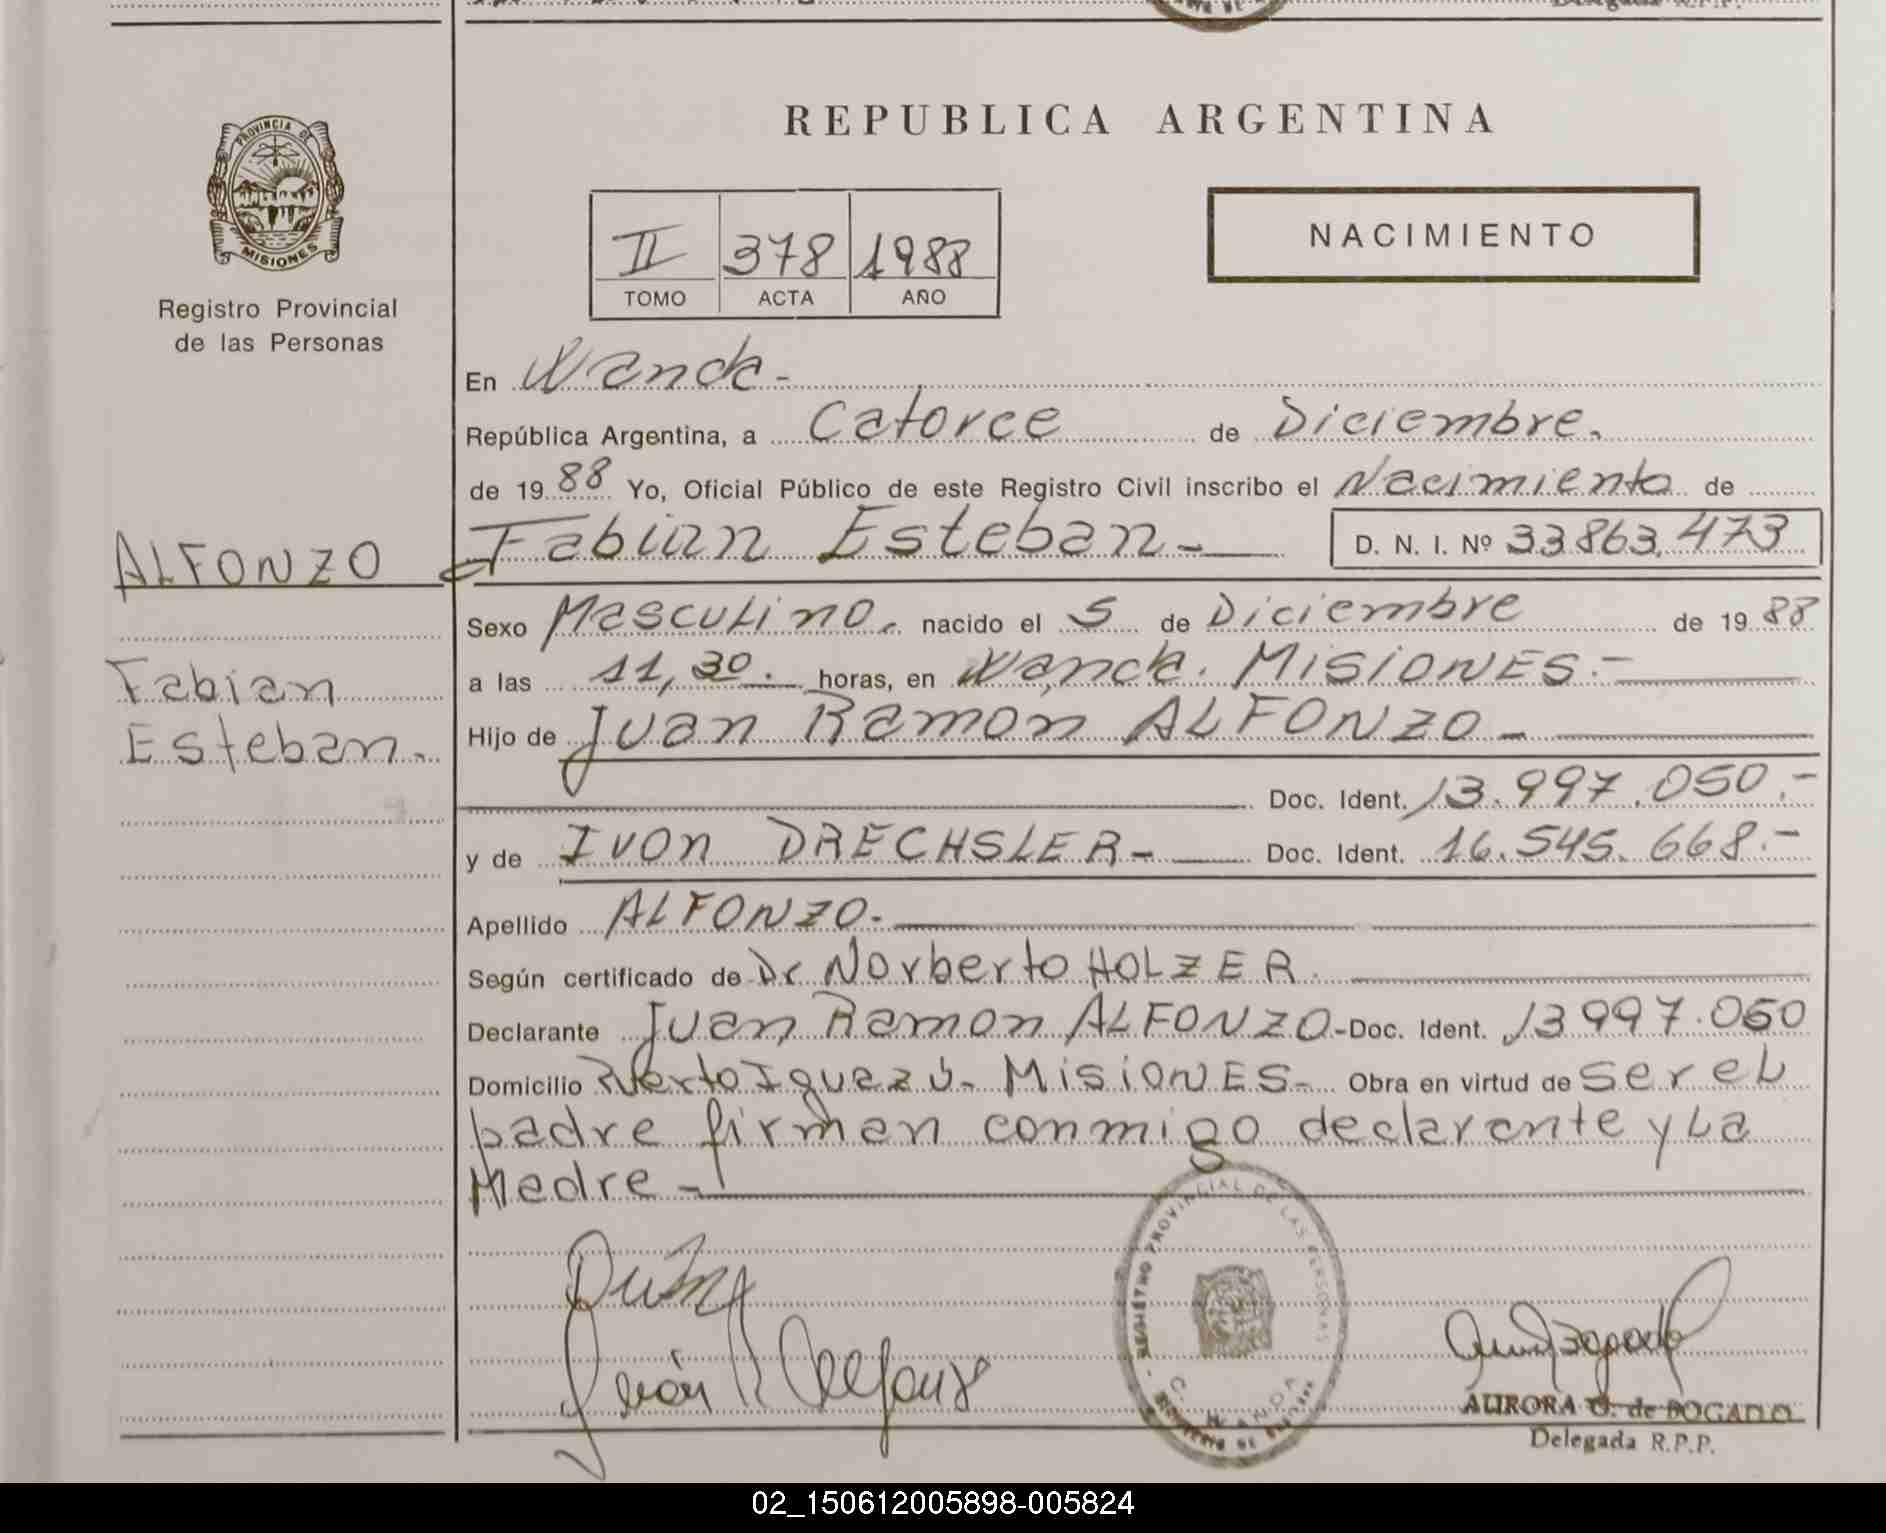 PROVINCIA DE
MISIONES
Registro Provincial
de las Personas
ALFONZO
Fabian
Esteban.
REPUBLICA ARGENTINA
II 378 1988
TOMO ACTA AÑO
NACIMIENTO
En Wanda-
República Argentina, a Catorce de Diciembre.
de 1988 Yo, Oficial Público de este Registro Civil inscribo el Nacimiento de
Fabian Esteban- D. N. I. Nº 33.863.473
Sexo Masculino. nacido el 5 de Diciembre de 1988
a las 11,30. horas, en Wanda. MISIONES.-
Hijo de Juan Ramon ALFONZO-
Doc. Ident. 13.997.050.-
y de Ivon DRECHSLER- Doc. Ident. 16.545.668.-
Apellido ALFONZO.
Según certificado de Dr Norberto HOLZER.
Declarante Juan Ramon ALFONZO.-Doc. Ident. 13997.050
Domicilio Puerto Iguazú- MISIONES- Obra en virtud de ser el
padre firman conmigo declarante y la
Madre-
REGISTRO PROVINCIAL DE LAS PERSONAS
C. WANDA
AURORA O. de BOGADO
Delegada R.P.P.
02_150612005898-005824